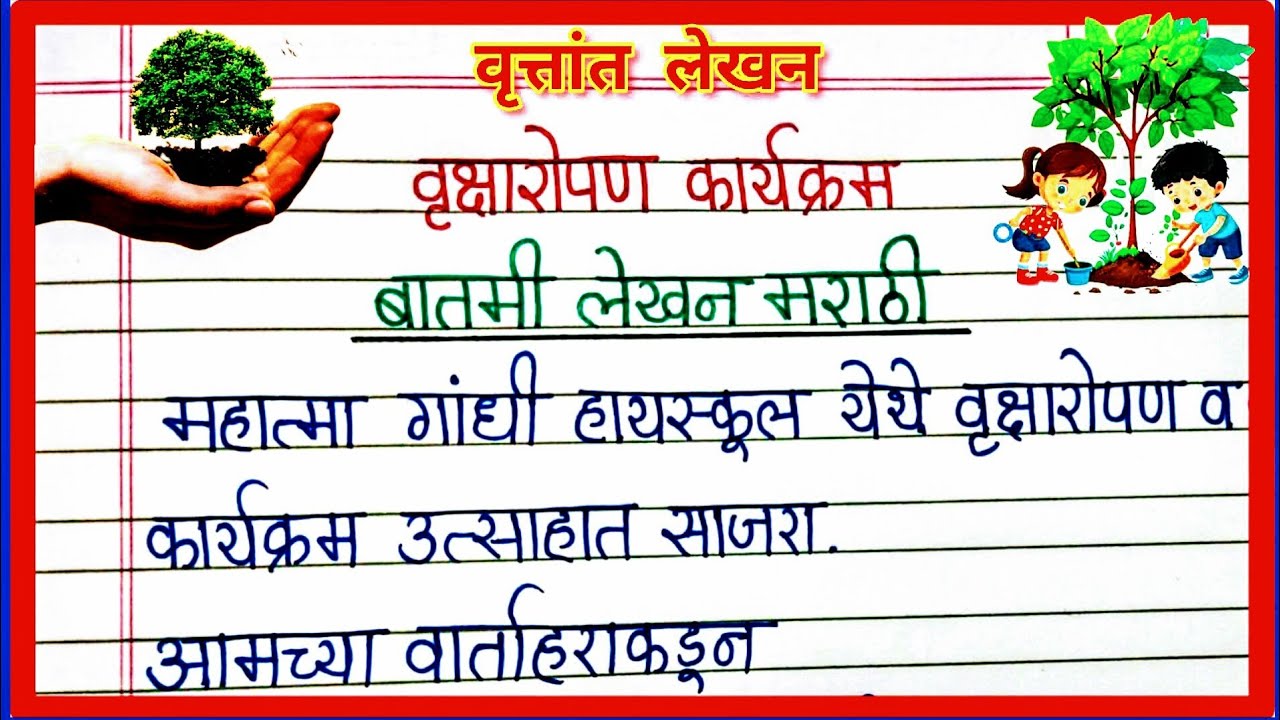 वृत्तांत लेखन
वृक्षारोपण कार्यक्रम
बातमी लेखन मराठी
महात्मा गांधी हायस्कूल येथे वृक्षारोपण व
कार्यक्रम उत्साहात साजरा.
आमच्या वार्ताहराकडून